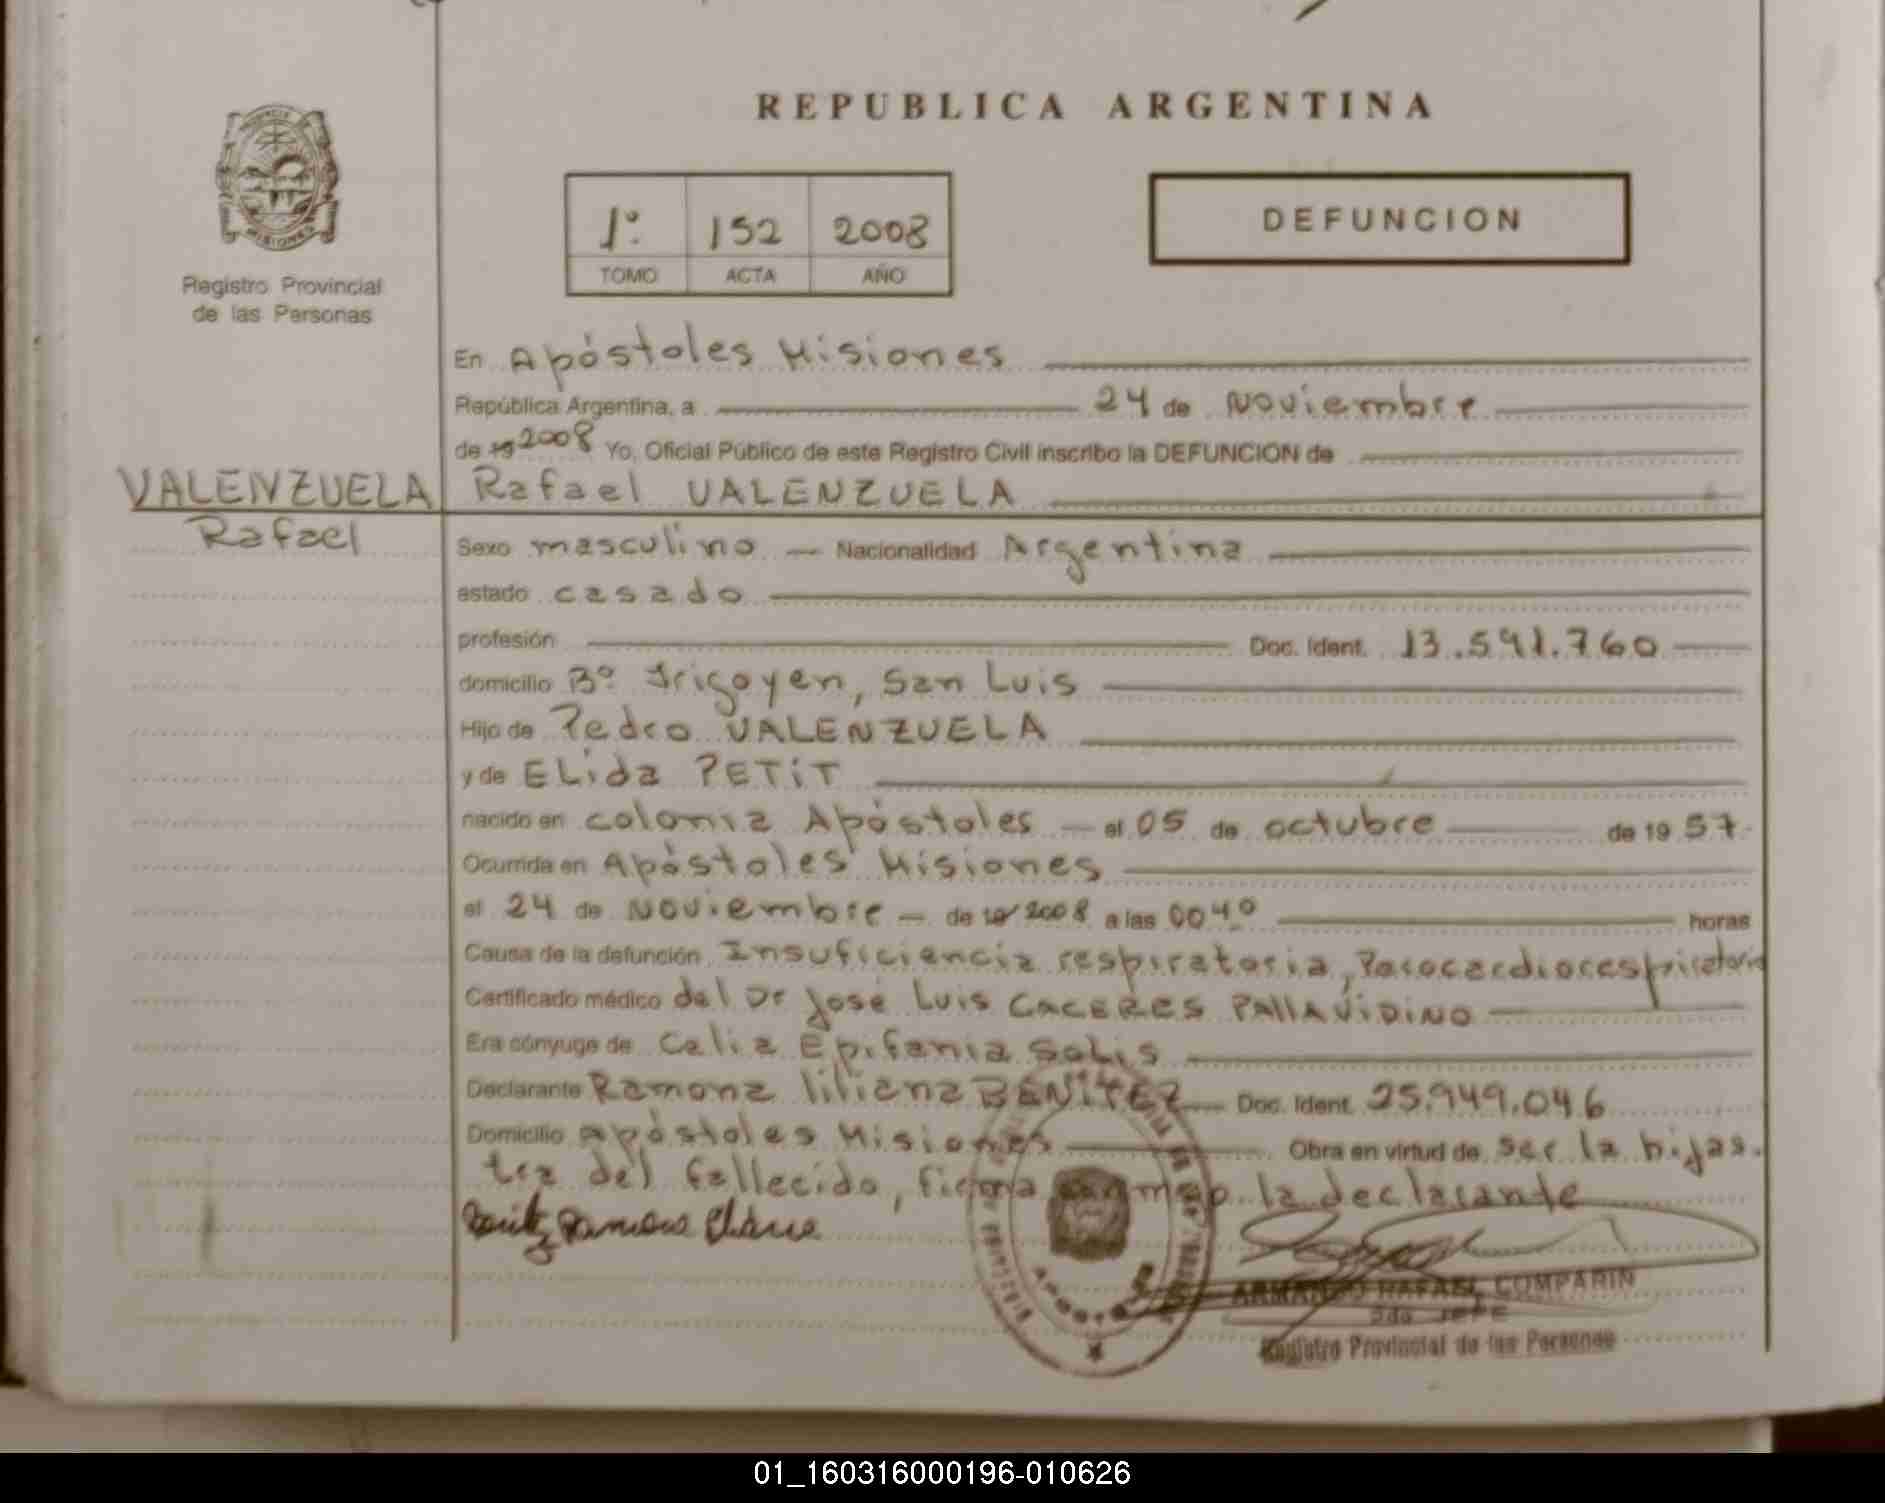 REPUBLICA ARGENTINA
1º 152 2008
TOMO ACTA AÑO
DEFUNCION
MISIONES
Registro Provincial
de las Personas
En Apóstoles Misiones
República Argentina, a 24 de Noviembre
de 19 2008 Yo, Oficial Público de este Registro Civil inscribo la DEFUNCION de
VALENZUELA Rafael VALENZUELA
Rafael
Sexo masculino Nacionalidad Argentina
estado casado
profesión Doc. Ident. 13.591.760
domicilio Bº Irigoyen, San Luis
Hijo de Pedro VALENZUELA
y de ELida PETiT
nacido en colonia Apóstoles el 05 de octubre de 19 57
Ocurrida en Apóstoles Misiones
el 24 de Noviembre de 19 2008 a las 0040 horas
Causa de la defunción Insuficiencia respiratoria, Parocardiorespiratorio
Certificado médico del Dr José Luis CACERES PALLAViDiNO
Era cónyuge de Celia Epifania Solis
Declarante Ramona liliana BENITEZ Doc. Ident. 25.949.046
Domicilio Apóstoles Misiones Obra en virtud de ser la hijas.
tra del fallecido, firma conmigo la declarante
Benitez Ramona Liliana
ARMANDO RAFAEL COMPARIN
2do JEFE
Registro Provincial de las Personas
01_160316000196-010626